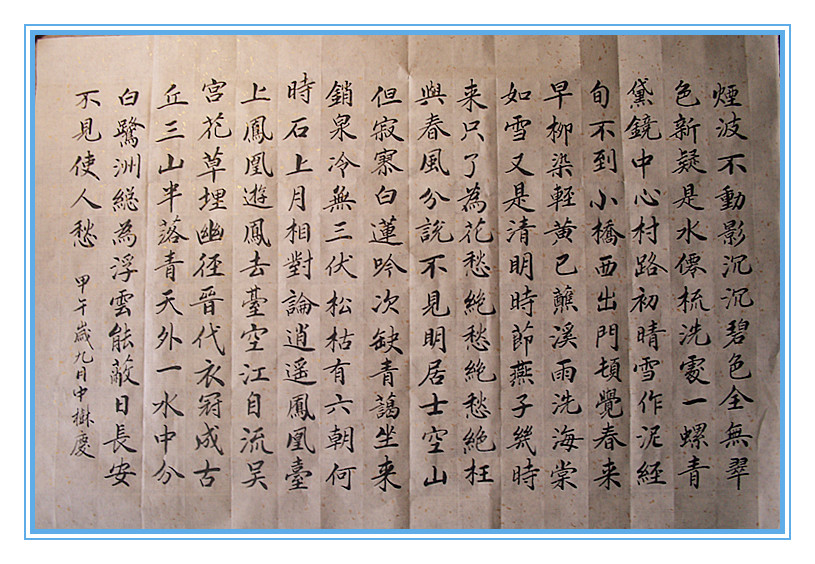 煙波不動影沉沉碧色全無翠
色新疑是水僊梳洗處一螺青
黛鏡中心村路初晴雪作泥經
旬不到小橋西出門頓覺春来
早柳染輕黃已蘸溪雨洗海棠
如雪又是清明時節燕子幾時
来只了為花愁絶愁絶愁絶枉
與春風分説不見明居士空山
但寂寥白蓮吟次缺青藹坐来
銷泉冷無三伏松枯有六朝何
時石上月相對論逍遥鳳凰臺
上鳳凰遊鳳去臺空江自流吴
宮花草埋幽徑晉代衣冠成古
丘三山半落青天外一水中分
白鷺洲總為浮雲能蔽日長安
不見使人愁 甲午歲九月中樹慶